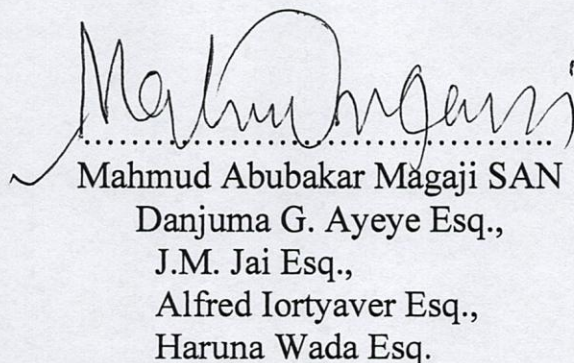 Mahmud Abubakar Magaji SAN
Danjuma G. Ayeye Esq.,
J.M. Jai Esq.,
Alfred Iortyaver Esq.,
Haruna Wada Esq.